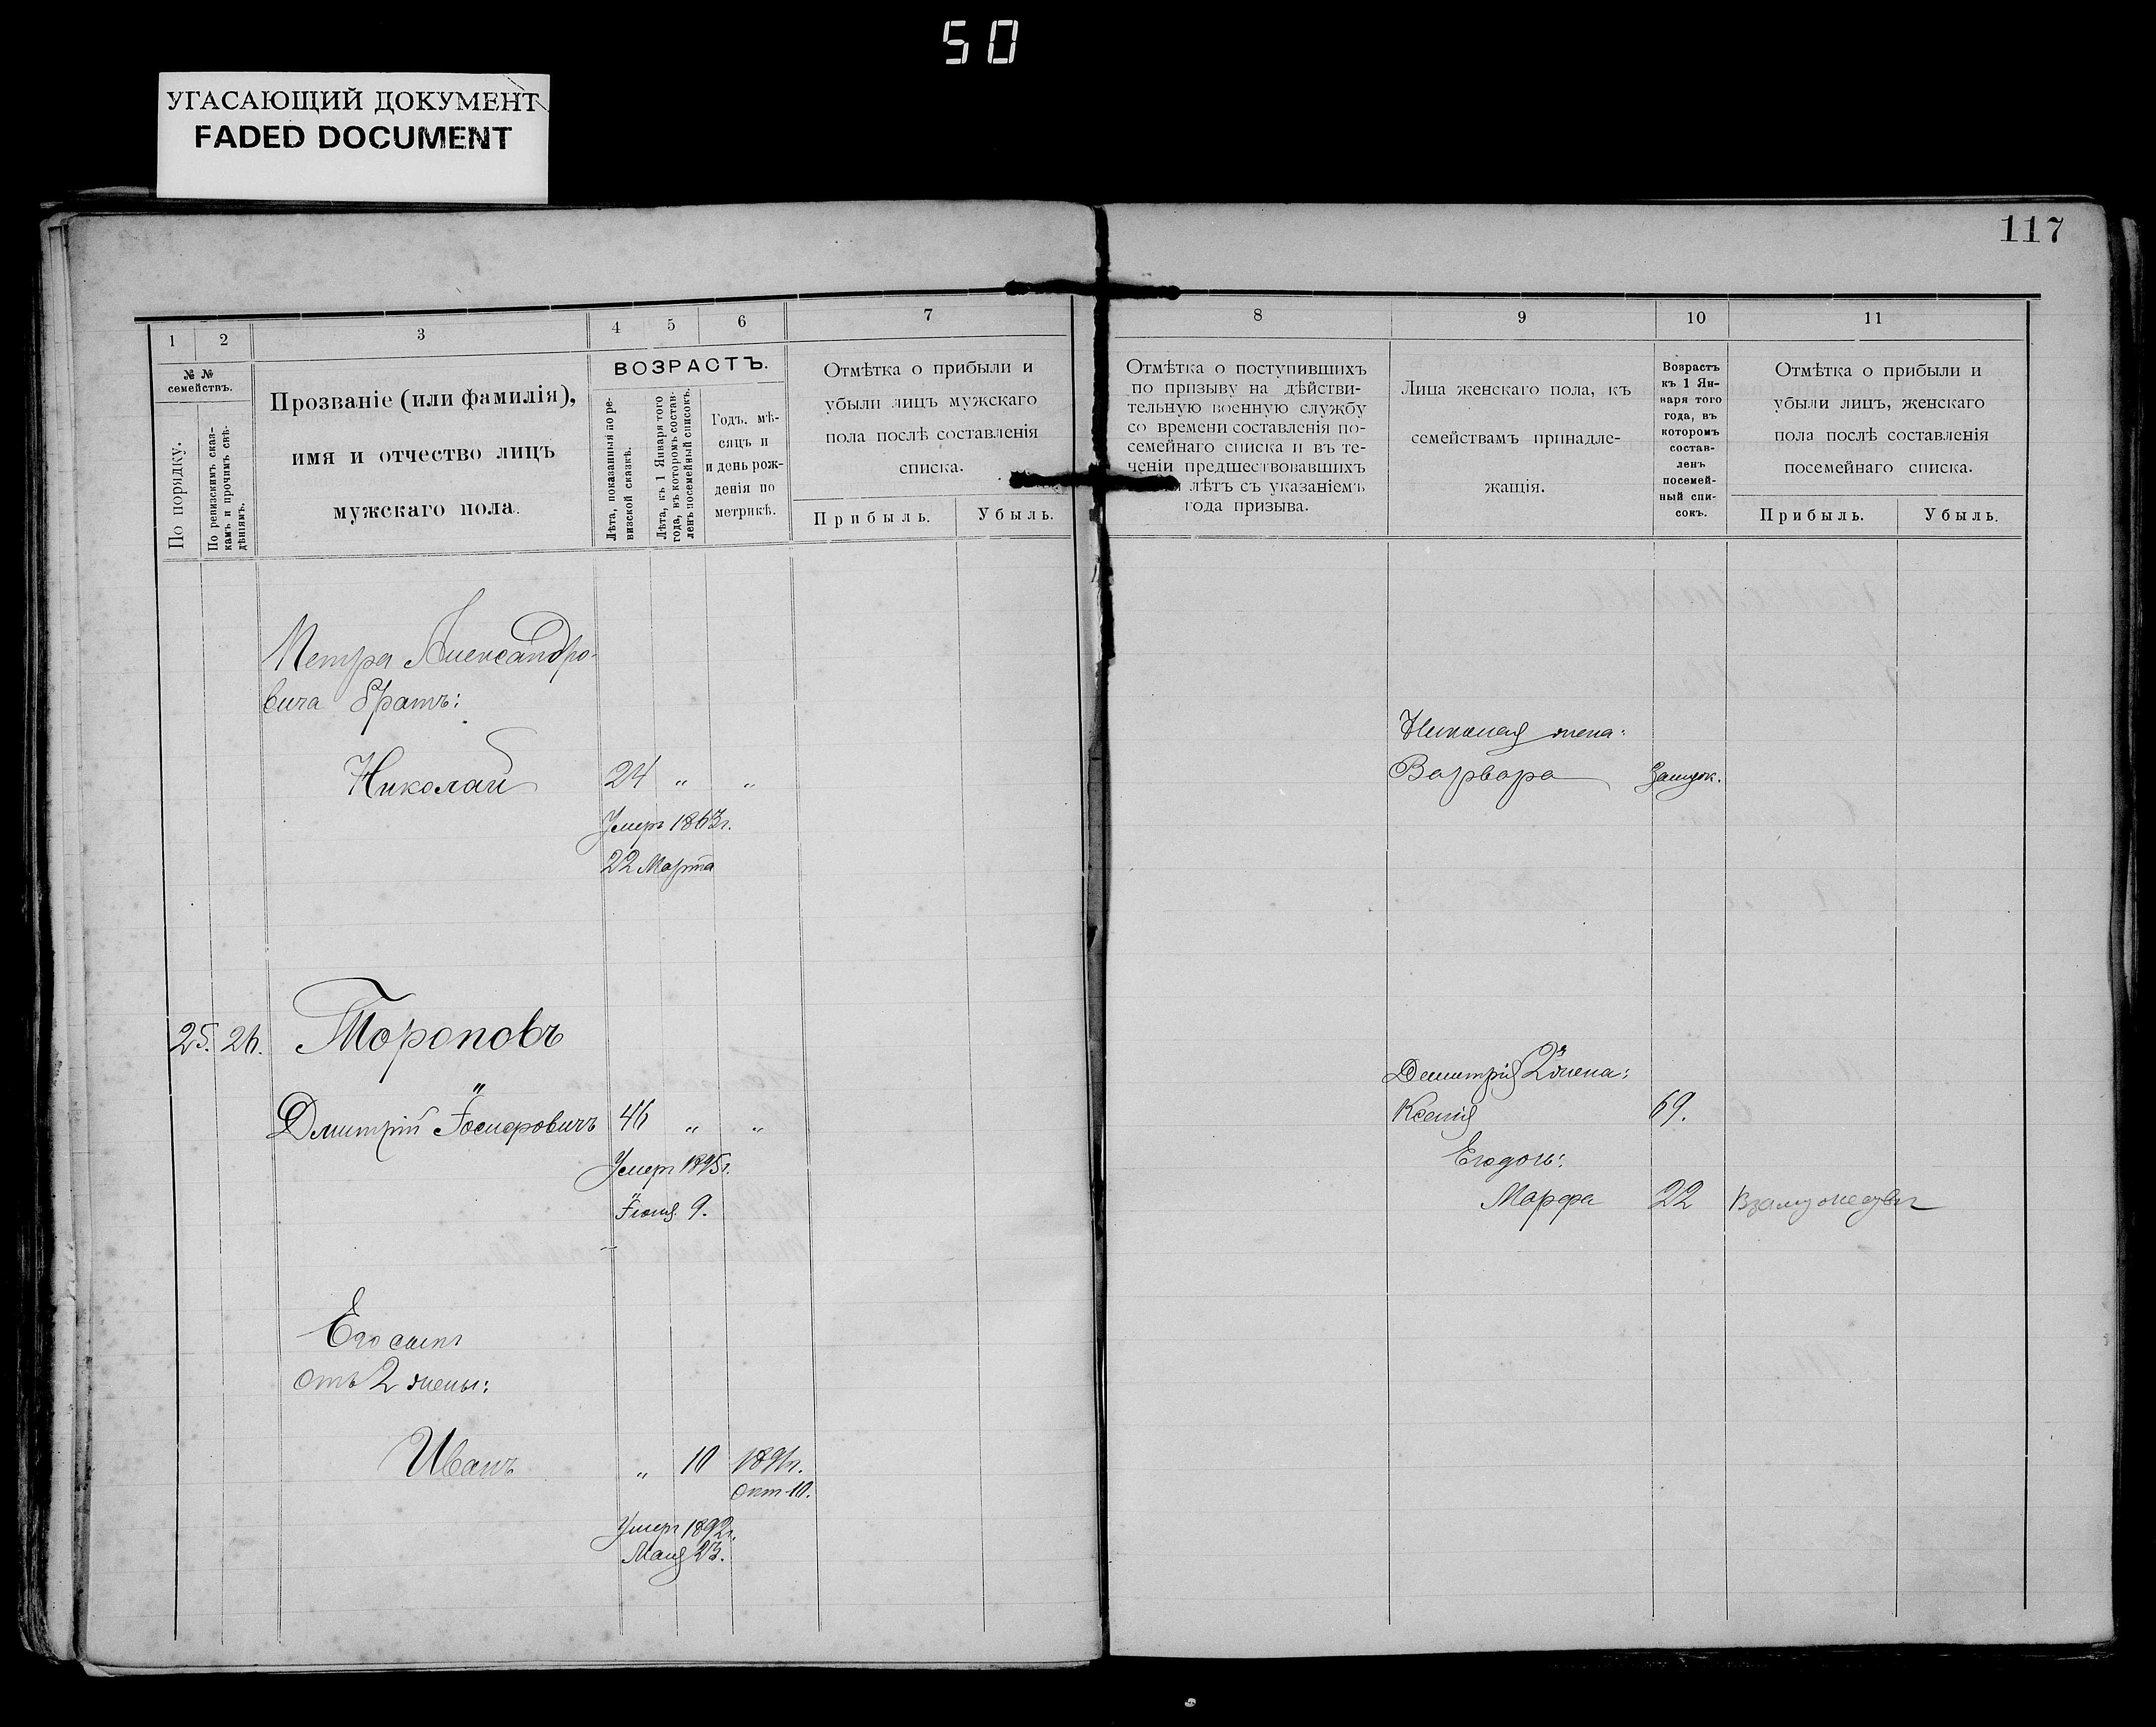 50
УГАСАЮЩИЙ ДОКУМЕНТ
FADED DOCUMENT
117
1 2 3 4 5 6 7
№ № семействъ.
По порядку.
По ревизскимъ сказ-
камъ и прочимъ свѣ-
дѣніямъ.
Прозваніе (или фамилія),
имя и отчество лицъ
мужскаго пола.
ВОЗРАСТЪ.
Лѣта, показанныя по ре-
визской сказкѣ.
Лѣта, къ 1 Января того
года, въ которомъ состав-
ленъ посемейный списокъ.
Годъ, мѣ-
сяцъ и
и день рож-
денія по
метрикѣ.
Отмѣтка о прибыли и
убыли лицъ мужскаго
пола послѣ составленія
списка.
Прибыль. Убыль.
8 9 10 11
Отмѣтка о поступившихъ
по призыву на дѣйстви-
тельную военную службу
со времени составленія по-
семейнаго списка и въ те-
ченіи предшествовавшихъ
лѣтъ съ указаніемъ
года призыва.
Лица женскаго пола, къ
семействамъ принадле-
жащія.
Возрастъ
къ 1 Ян-
варя того
года, въ
которомъ
состав-
ленъ
посемей-
ный спи-
сокъ.
Отмѣтка о прибыли и
убыли лицъ, женскаго
пола послѣ составленія
посемейнаго списка.
Прибыль. Убыль.
Петра Александро-
вича братъ:
Николай 24 " "
Умеръ 1863г.
22 Марта
25. 26. Тороповъ
Дмитрій Іосифовичъ 46 " "
Умеръ 1895г.
Іюня 9.
Его сынъ
отъ 2 жены:
Иванъ " 10 1891г.
Окт 10.
Умеръ 1892г.
Мая 23.
Николая жена:
Варвара Замуж.
Димитрія 2я жена:
Ксенія 69.
Его дочь:
Марфа 22 В замужествѣ